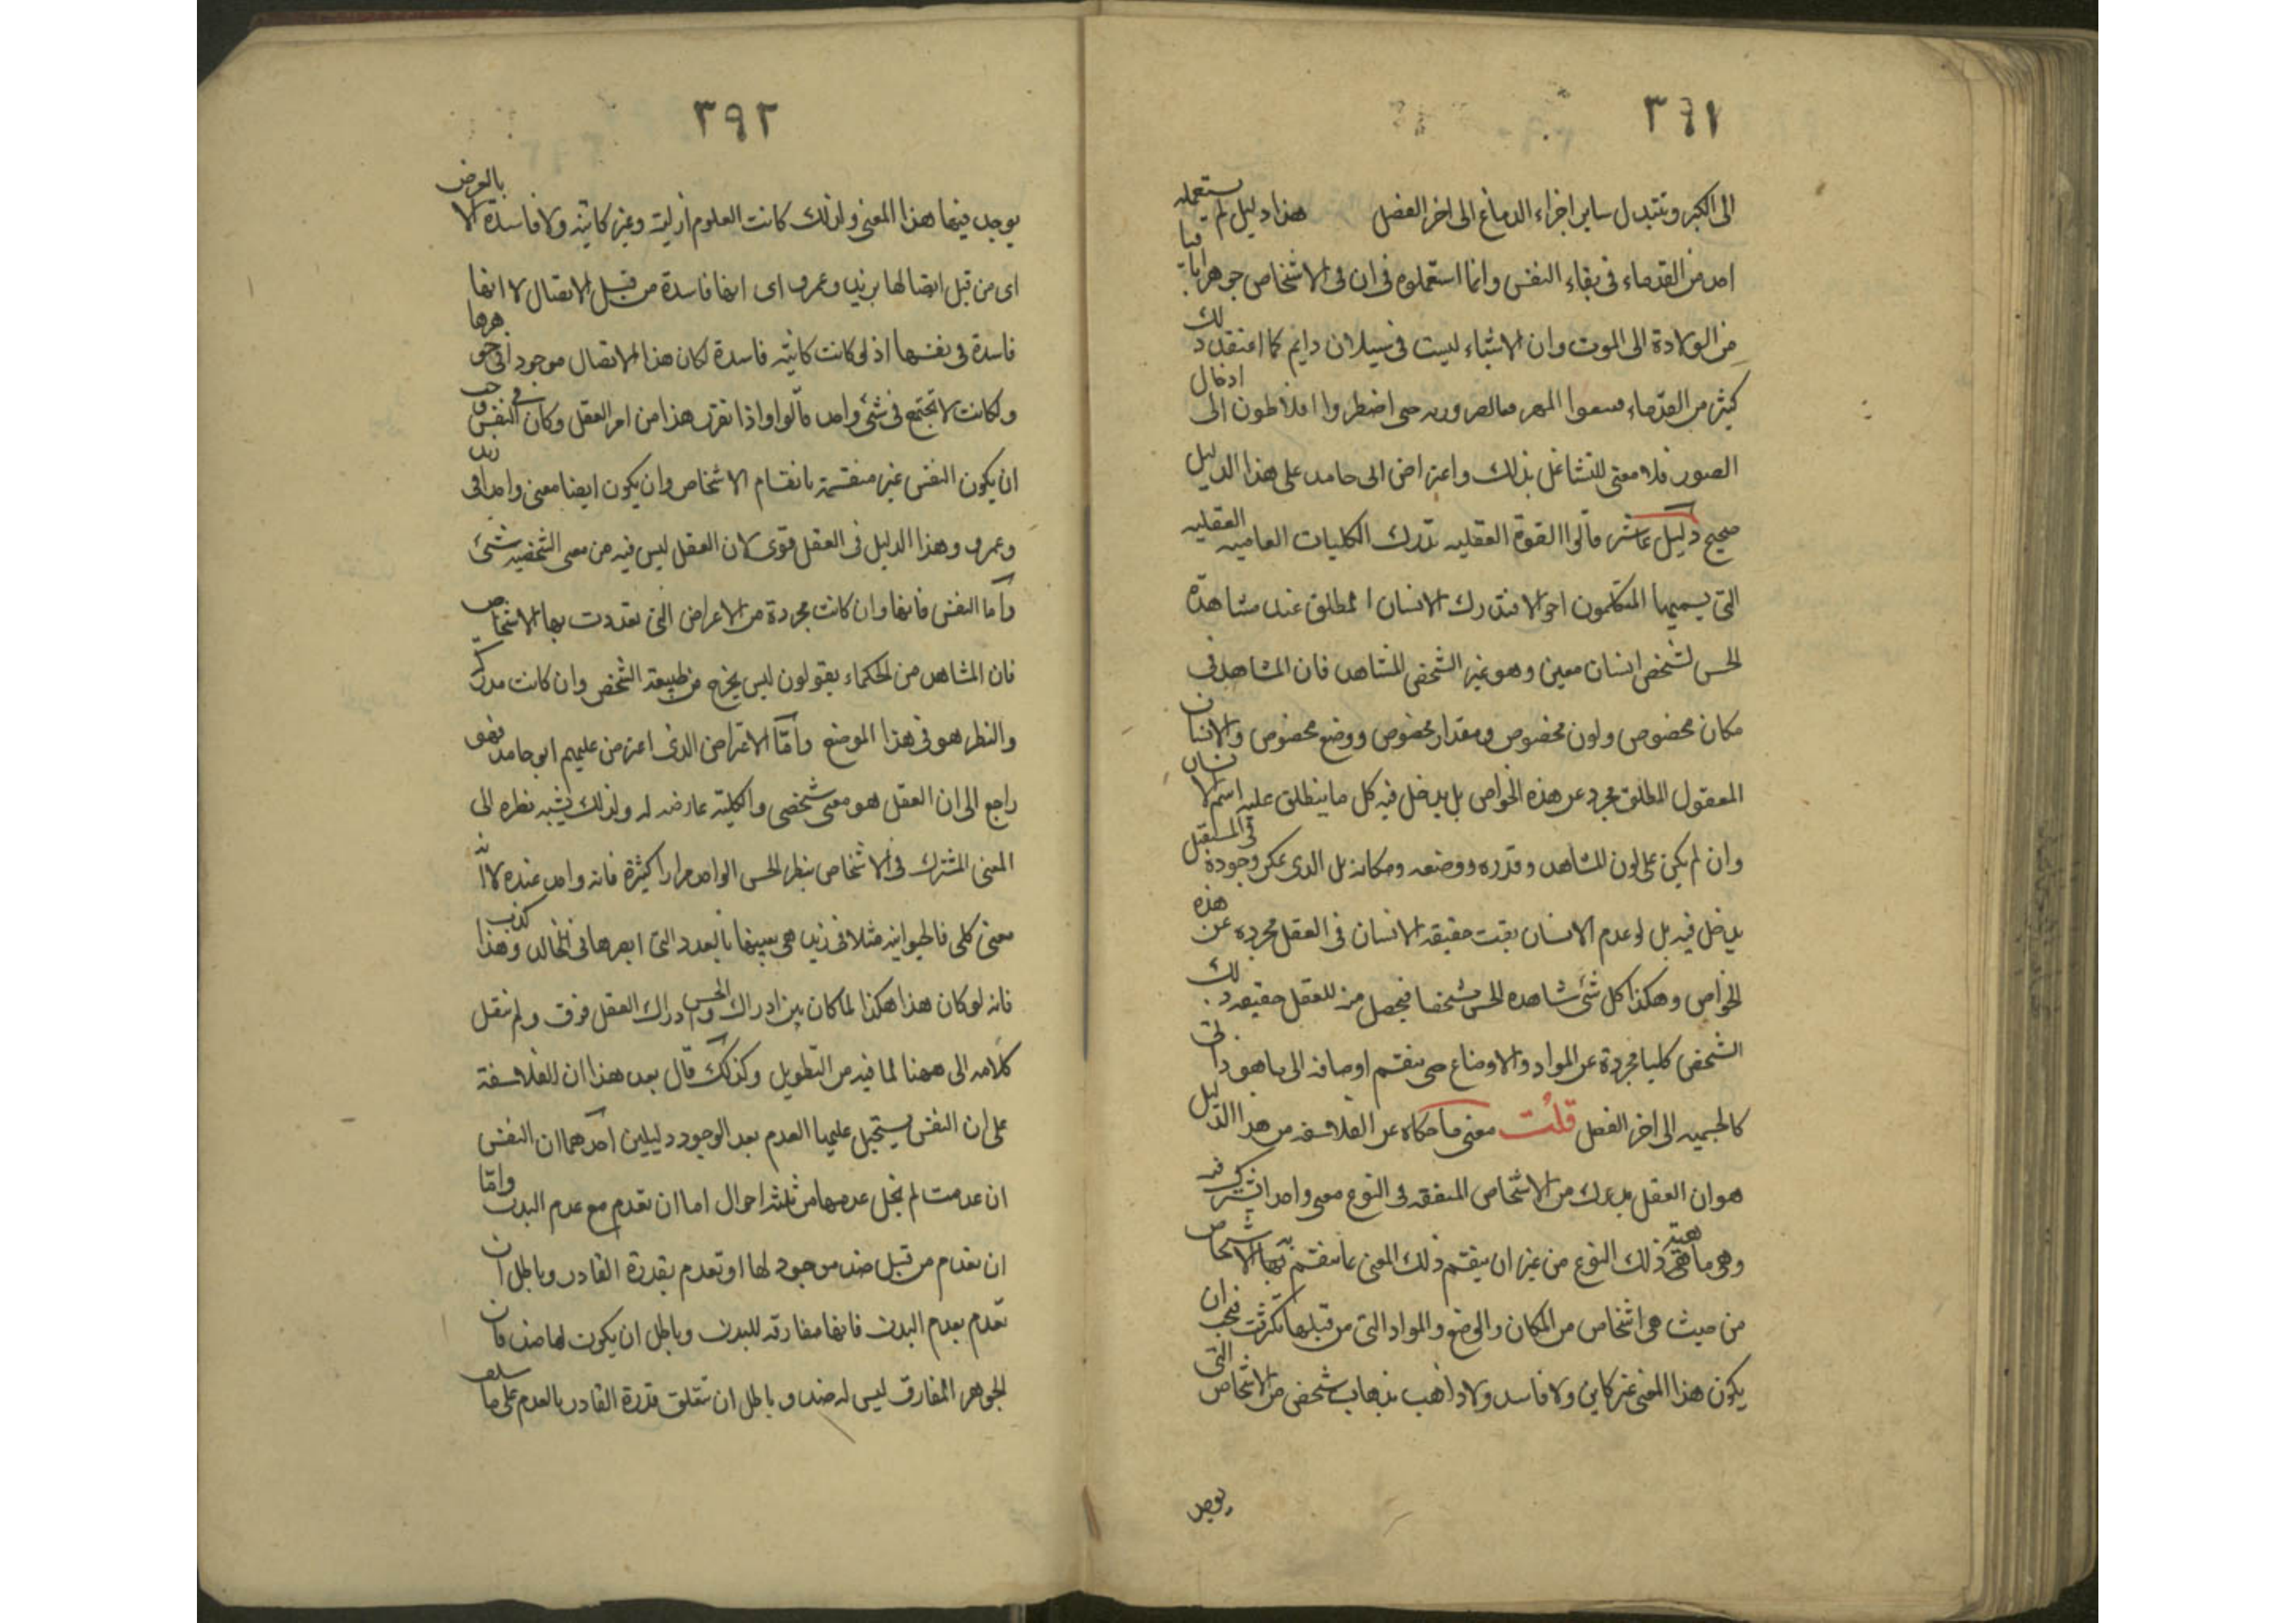 ٣٩١
الى الكبر وتتبدل ساير اجزاء الدماغ الى اخر الفصل هذا دليل لم يستعمله
احد من القدماء فى بقاء النفس وانما استعملوه فى ان فى الاشخاص جوهرا باقيا
من الولادة الى الموت وان الاشياء ليست فى سيلان دايم كما اعتقد ذلك
كثير من القدماء اضطروا افلاطون الى ادخال
الصور فلا معنى للتشاغل بذلك واعتراض ابى حامد على هذا الدليل
صحيح دليل عاشر قالوا القوة العقليه تدرك الكليات العاميه العقليه
التى يسميها المتكلمون احوالا فتدرك الانسان المطلق عند مشاهدة
الحس لشخص انسان معين وهو غير الشخص المشاهد فان المشاهد فى
مكان مخصوص ولون مخصوص ومقدار مخصوص ووضع مخصوص والانسان
المعقول المطلق مجرد عن هذه الخواص بل يدخل فيه كل ما ينطلق عليه اسم الانسان
وان لم يكن على لون المشاهد وقدره ووضعه ومكانه بل الذى يمكن وجوده فى المستقبل
يدخل فيه بل لو عدم الانسان بقيت حقيقة الانسان فى العقل مجرده عن هذه
الخواص وهكذا كل شئ شاهده الحس مشخصا فيحصل منه للعقل حقيقه ذلك
الشخص كليا مجردة عن المواد والاوضاع حتى ينقسم اوصافه الى ما هو ذاتى
كالجسميه الى اخر الفصل قلت معنى ما حكاه عن الفلاسفه من هذا الدليل
هو ان العقل يدرك من الاشخاص المتفقه فى النوع معنى واحدا تشترك فيه
وهى ماهية ذلك النوع من غير ان ينقسم ذلك المعنى بما تنقسم به الاشخاص
من حيث هى اشخاص من المكان والوضع والمواد التى من قبلها تكثرت فيجب ان
يكون هذا المعنى غير كاين ولا فاسد ولا ذاهب بذهاب شخص من الاشخاص التى
يوجد
٣٩٢
يوجد فيها هذا المعنى ولذلك كانت العلوم ازلية وغير كائنة ولا فاسدة الا بالعرض
اى من قبل اتصالها بزيد وعمرو اى انها فاسدة من قبل الاتصال لا انها
فاسدة فى نفسها اذ لو كانت كائنة فاسدة لكان هذا الاتصال موجودا فى جوهرها
ولكانت لا تجتمع فى شئ واحد قالوا واذا تقرر هذا من امر العقل وكان فى النفس وجب
ان يكون النفس غير منقسمة بانقسام الاشخاص وان يكون ايضا معنى واحدا فى زيد
وعمرو وهذا الدليل فى العقل قوى لان العقل ليس فيه من معنى الشخصيه شئ
واما النفس فانها وان كانت مجردة من الاعراض التى تعددت بها الاشخاص
فان المشاهير من الحكماء يقولون ليس يخرج من طبيعة الشخص وان كانت مدركة
والنظر هو فى هذا الموضع وامّا الاعتراض الذى اعترض عليهم ابو حامد فهو
راجع الى ان العقل هو معنى شخصى والكلية عارضه له ولذلك يشبه نظره الى
المعنى المشترك فى الاشخاص بنظر الحس الواحد مرارا كثيرة فانه واحد عنده لا انه
معنى كلى فالحيوانيه مثلا فى زيد هى بعينها بالعدد التى ابصرها فى خالد وهذا كذب
فانه لو كان هذا هكذا لما كان بين ادراك الحس وادراك العقل فرق ولم ننقل
كلامه الى ههنا لما فيه من التطويل وكذلك قال بعد هذا ان للفلاسفة
على ان النفس يستحيل عليها العدم بعد الوجود دليلين احدهما ان النفس
ان عدمت لم يخل عدمها من ثلثه احوال اما ان تعدم مع عدم البدن واما
ان تعدم من قبل ضد موجود لها او تعدم بقدرة القادر وباطل ان
تعدم بعدم البدن فانها مفارقه للبدن وباطل ان يكون لها ضد فان
الجوهر المفارق ليس له ضد وباطل ان تتعلق قدرة القادر بالعدم على ما سلف